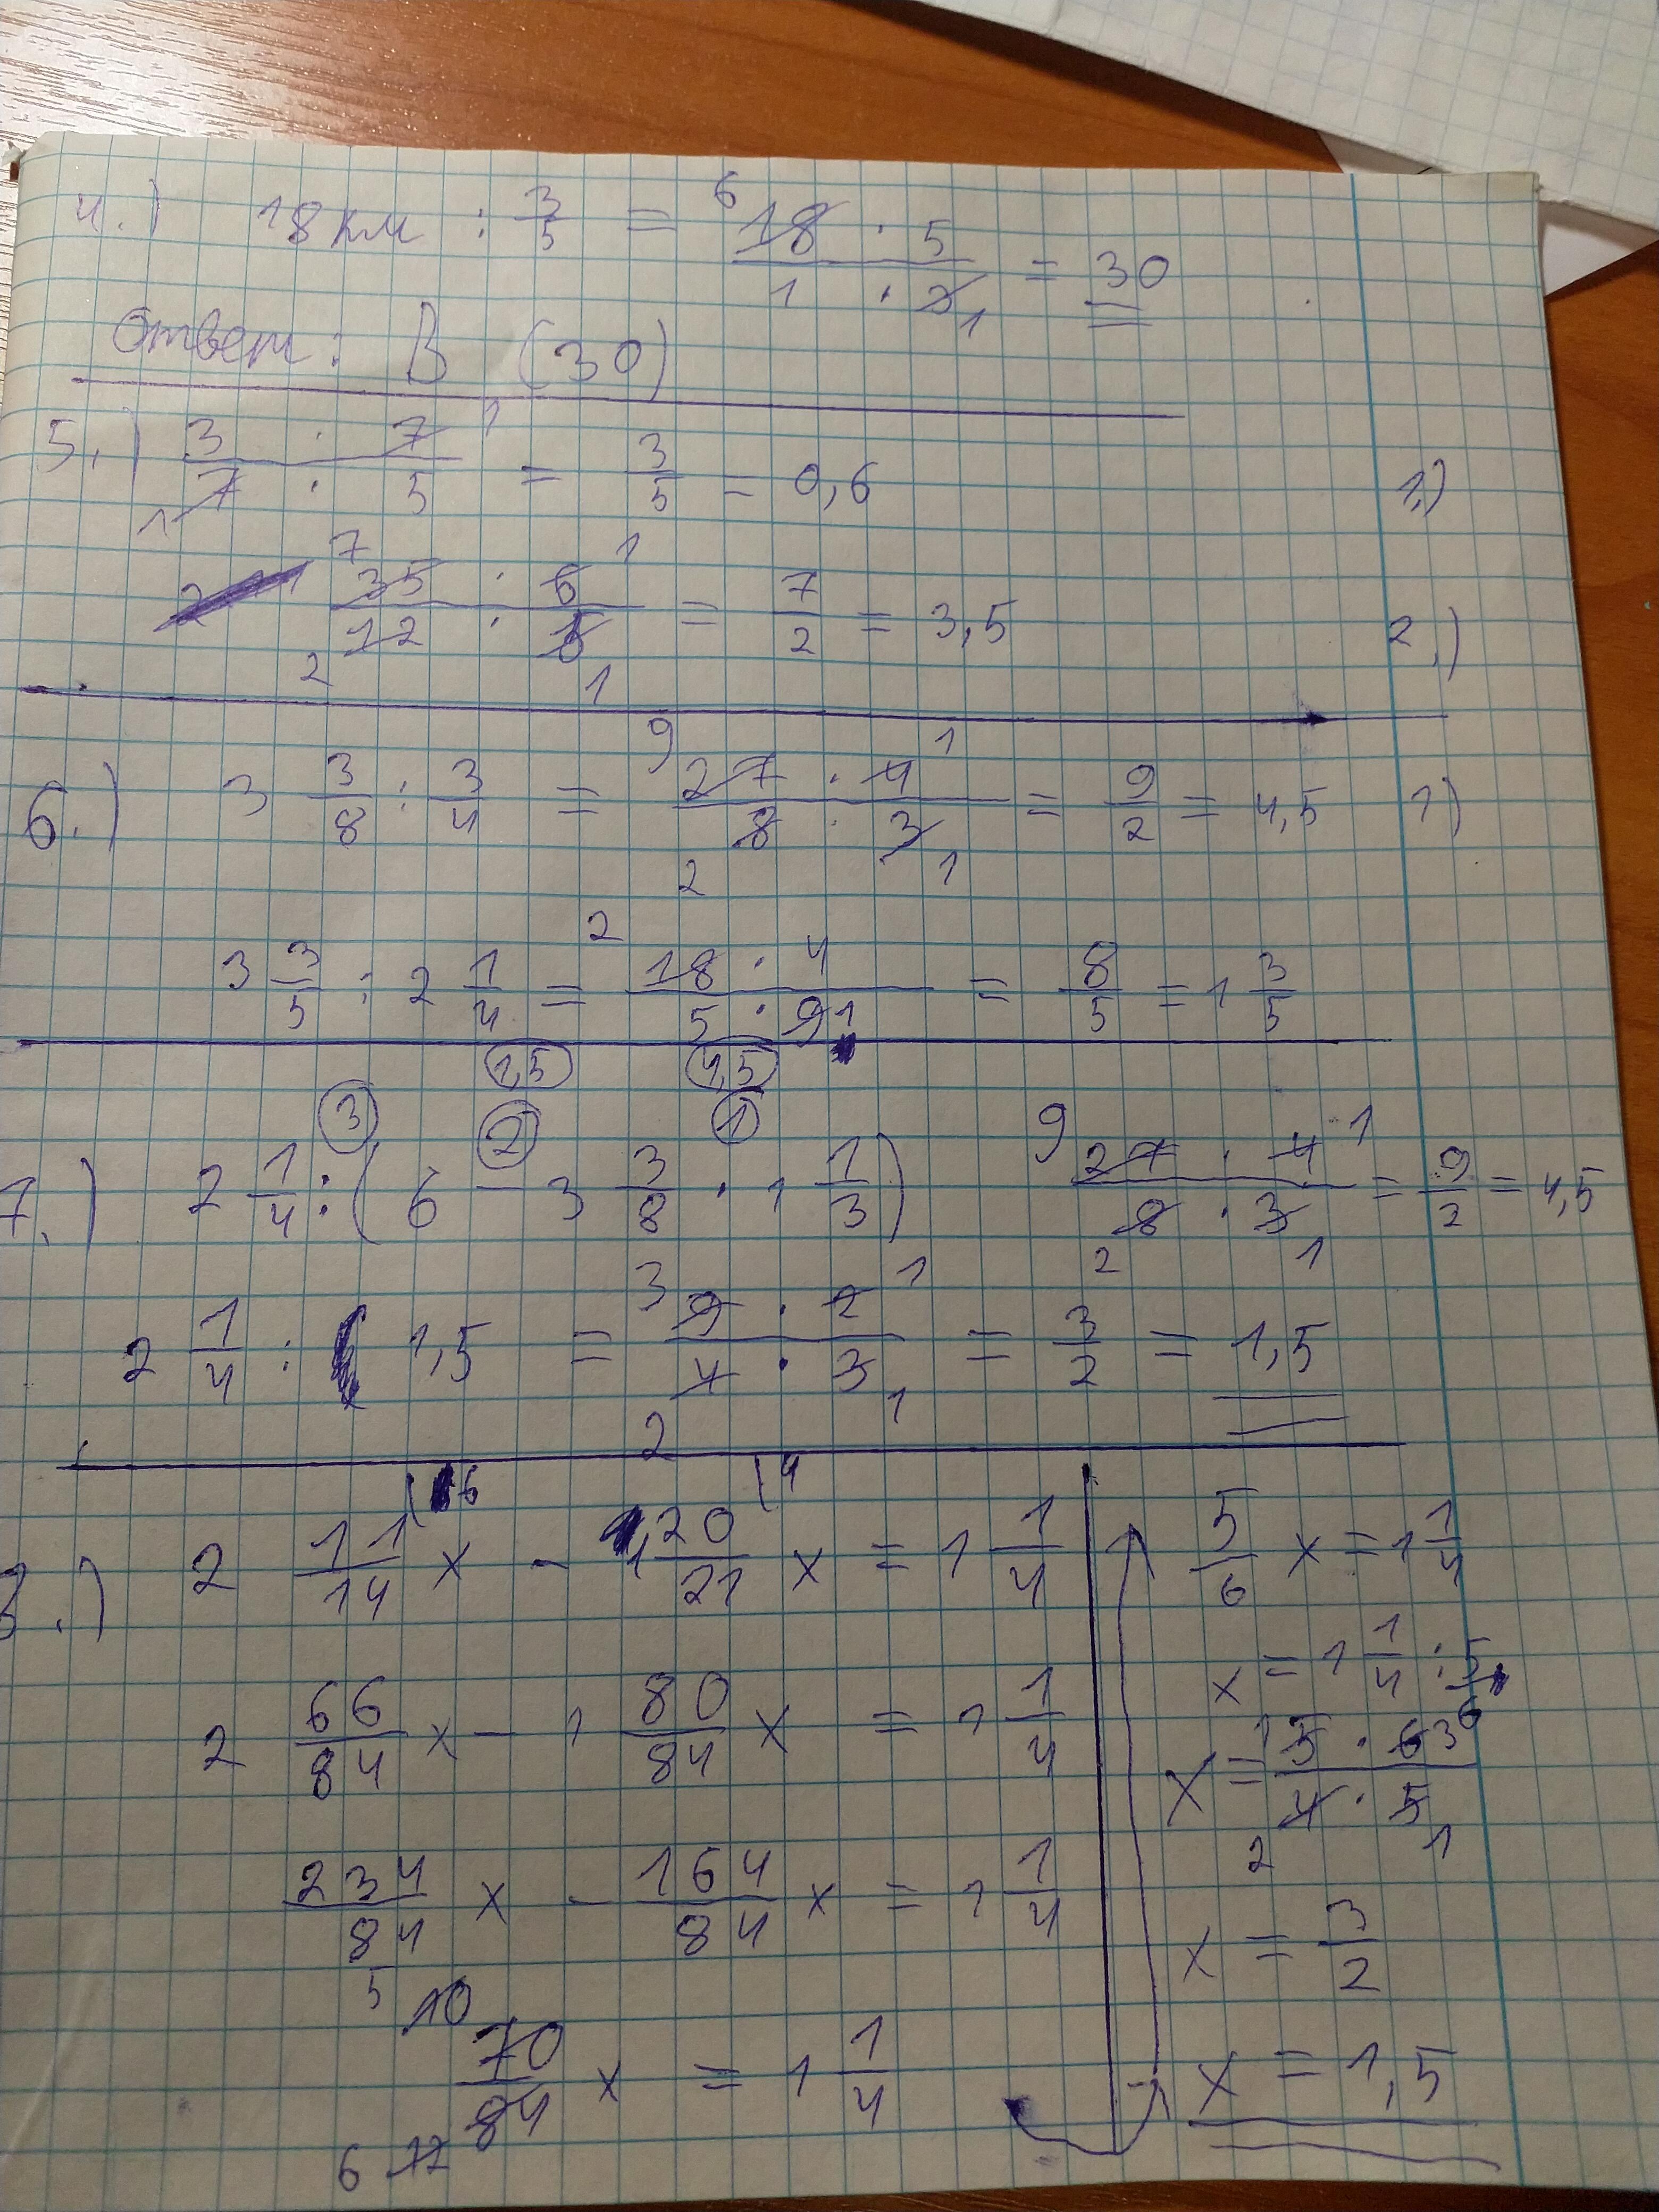 4.) 18 км : 3/5 = 6 18 · 5 / 1 · 3 1 = 30
Ответ: В (30)
5.) 3 · 7 1 / 1 7 · 5 = 3/5 = 0,6 1.)
7 35 · 6 1 / 2 12 · 5 1 = 7/2 = 3,5 2.)
6.) 3 3/8 : 3/4 = 9 27 · 4 1 / 2 8 · 3 1 = 9/2 = 4,5 1)
3 3/5 : 2 1/4 = 2 18 · 4 / 5 · 9 1 = 8/5 = 1 3/5
1,5 4,5
3 2 1
7.) 2 1/4 : ( 6 - 3 3/8 · 1 1/3 ) 9 27 · 4 1 / 2 8 · 3 1 = 9/2 = 4,5
2 1/4 : 1,5 = 3 9 · 2 1 / 2 4 · 3 1 = 3/2 = 1,5
.) 2 11/14 \6 x - 1 20/21 \4 x = 1 1/4
2 66/84 x - 1 80/84 x = 1 1/4
234/84 x - 164/84 x = 1 1/4
5 10 70 / 6 12 84 x = 1 1/4
5/6 x = 1 1/4
x = 1 1/4 : 5/6
x = 1 5 · 6 3 / 2 4 · 5 1
x = 3/2
x = 1,5